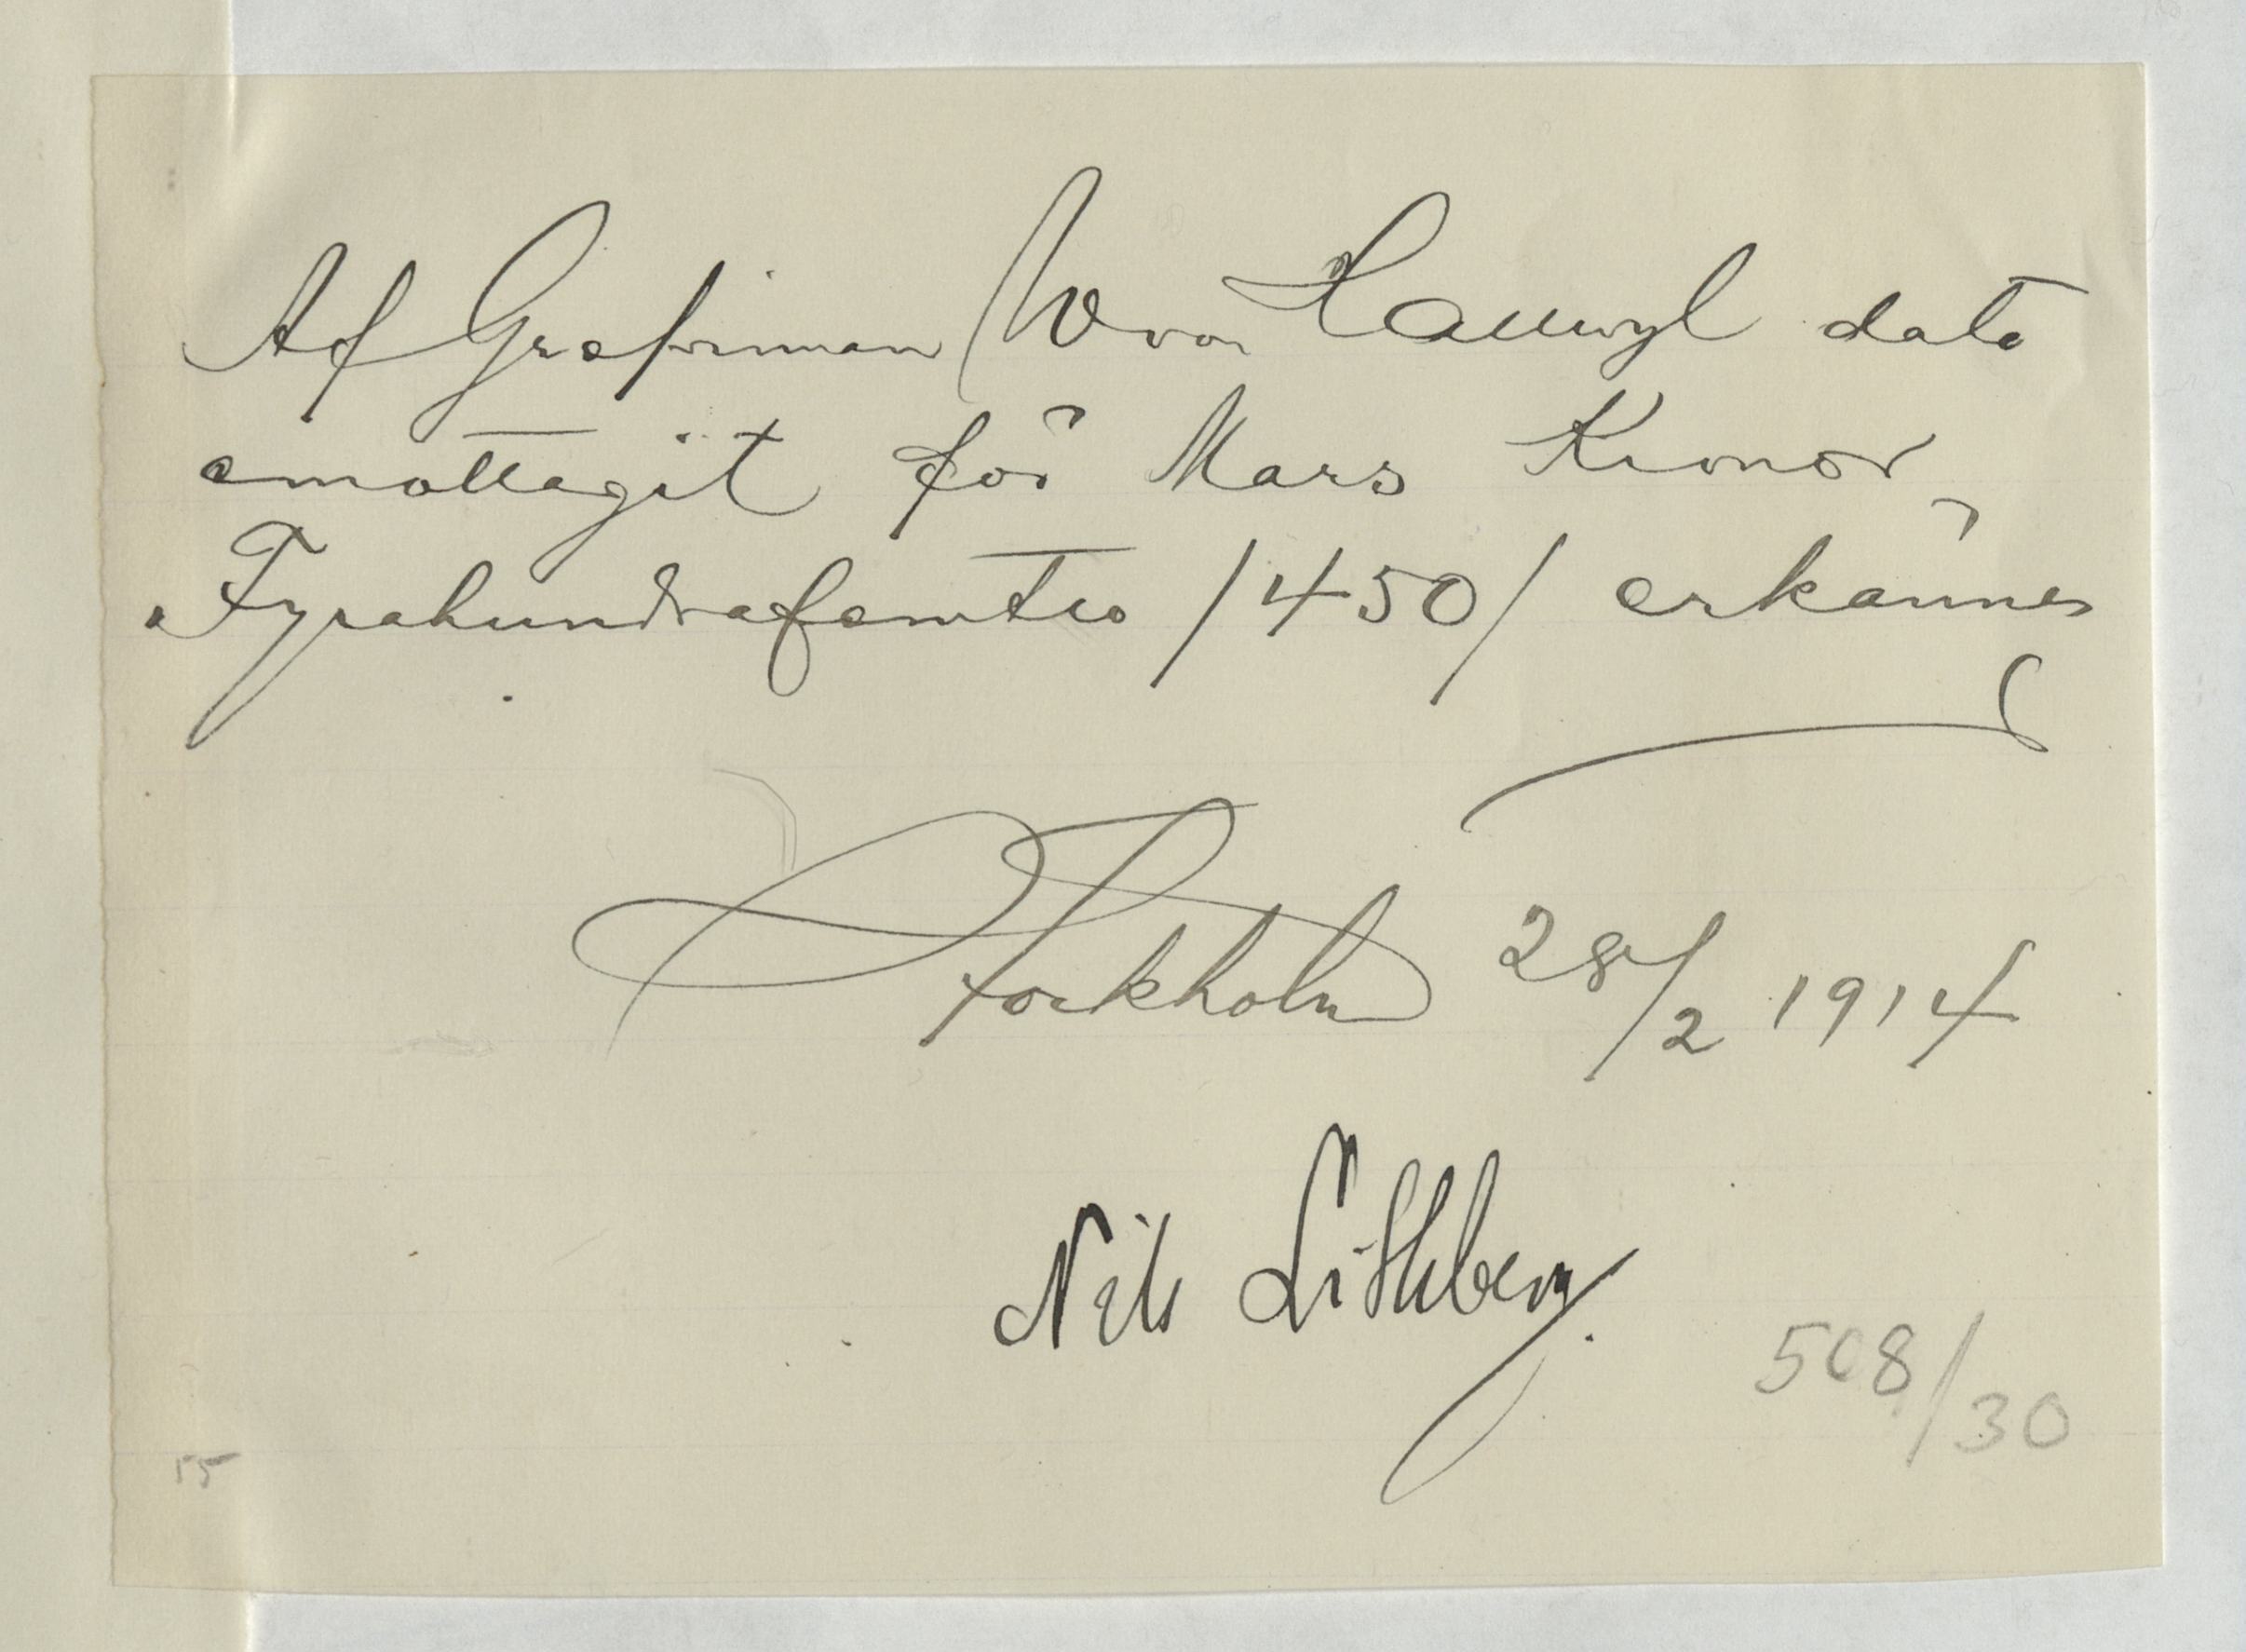 Af Grefvinnan W von Hallwyl dato
emottagit för Mars Kronor
Fyrahundrafemtio /450/ erkännes
Stockholm 28/2 1914
Nils Lithberg
508/30
55